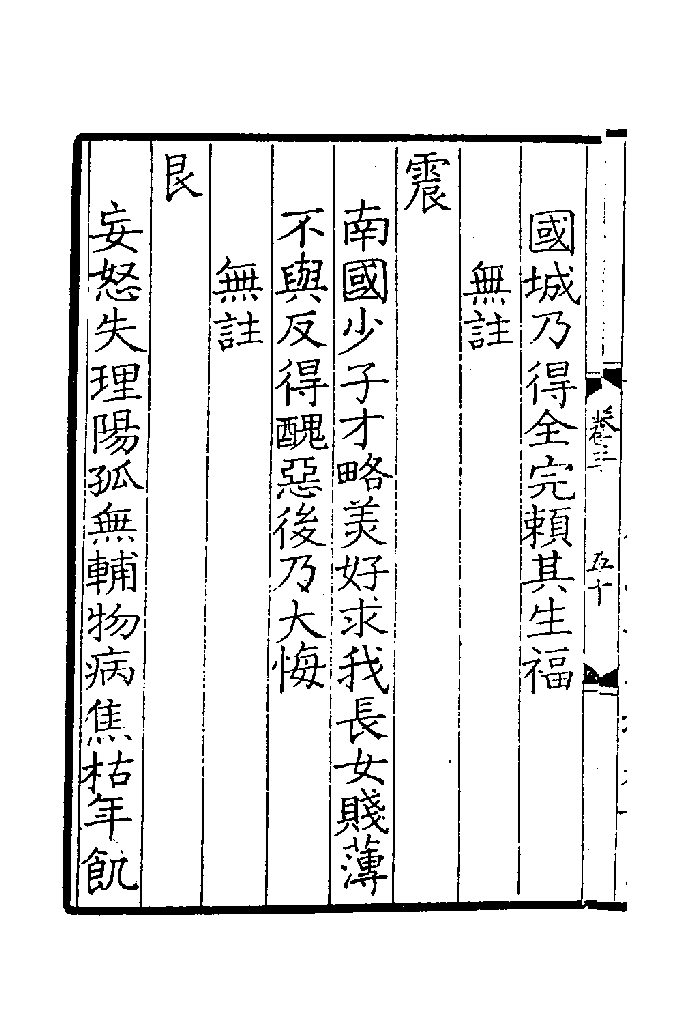 卷三 五十
國城乃得全完賴其生福
無註
震
南國少子才略美好求我長女賤薄
不與反得醜惡後乃大悔
無註
艮
妄怒失理陽孤無輔物病焦枯年飢